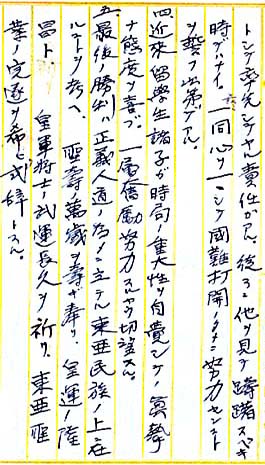 トシテ率先シテヤル責任ガアル。後ヲ他ヲ見テ躊躇スベキ
時デハナイ。一同心ヲ一ニシテ國難打開ノタメニ努力センコト
ヲ誓フ次第デアル。
四、近來留學生諸子ガ時局ノ重大性ヲ自覺シテノ眞摯
ナ態度ヲ喜ブ。一層奮勵努力スルヤウ切望スル。
五、最後ノ勝利ハ正義人道ノ為メニ立テル東亜民族ノ上ニ在
ルコトヲ考ヘ、聖壽萬歳ヲ壽ギ奉リ、皇運ノ隆
昌ト、皇軍將士ノ武運長久ヲ祈リ、東亜聖
業ノ完遂ヲ希ヒ式辞トスル。